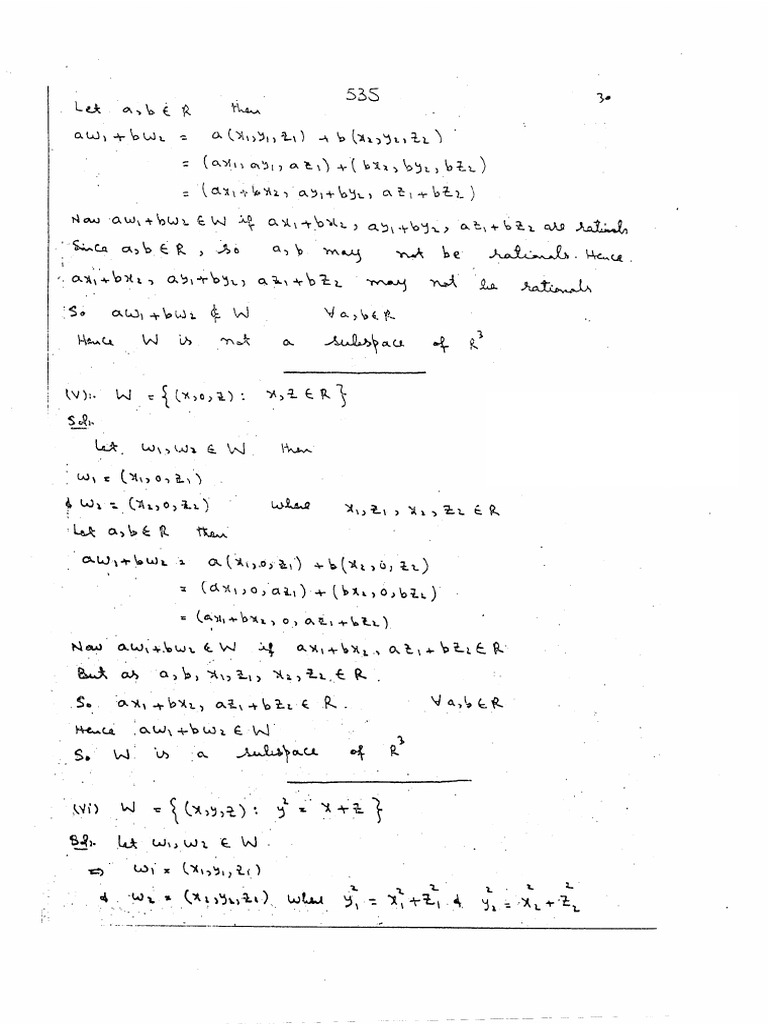 535
30
Let a,b ∈ R then
aw₁+bw₂ = a(x₁,y₁,z₁) + b(x₂,y₂,z₂)
= (ax₁, ay₁, az₁)+(bx₂, by₂, bz₂)
= (ax₁+bx₂, ay₁+by₂, az₁+bz₂)
Now aw₁+bw₂ ∈ W if ax₁+bx₂, ay₁+by₂, az₁+bz₂ are rationals
Since a,b ∈ R, so a,b may not be rationals. Hence
ax₁+bx₂, ay₁+by₂, az₁+bz₂ may not be rationals
So aw₁+bw₂ ∉ W ∀ a,b ∈ R
Hence W is not a subspace of R³
(V):. W = {(x,0,z): x,z ∈ R}
Sol:.
Let w₁,w₂ ∈ W then
w₁ = (x₁,0,z₁)
& w₂ = (x₂,0,z₂) where x₁,z₁, x₂,z₂ ∈ R
Let a,b ∈ R then
aw₁+bw₂ = a(x₁,0,z₁) + b(x₂,0,z₂)
= (ax₁,0,az₁)+(bx₂,0,bz₂)
= (ax₁+bx₂, 0, az₁+bz₂)
Now aw₁+bw₂ ∈ W if ax₁+bx₂, az₁+bz₂ ∈ R
But as a,b, x₁,z₁, x₂,z₂ ∈ R.
So ax₁+bx₂, az₁+bz₂ ∈ R. ∀ a,b ∈ R
Hence aw₁+bw₂ ∈ W
So W is a subspace of R³
(Vi) W = {(x,y,z): y² = x+z}
Sol:. Let w₁,w₂ ∈ W.
⇒ w₁ = (x₁,y₁,z₁)
& w₂ = (x₂,y₂,z₁) where y₁² = x₁²+z₁² & y₂² = x₂²+z₂²